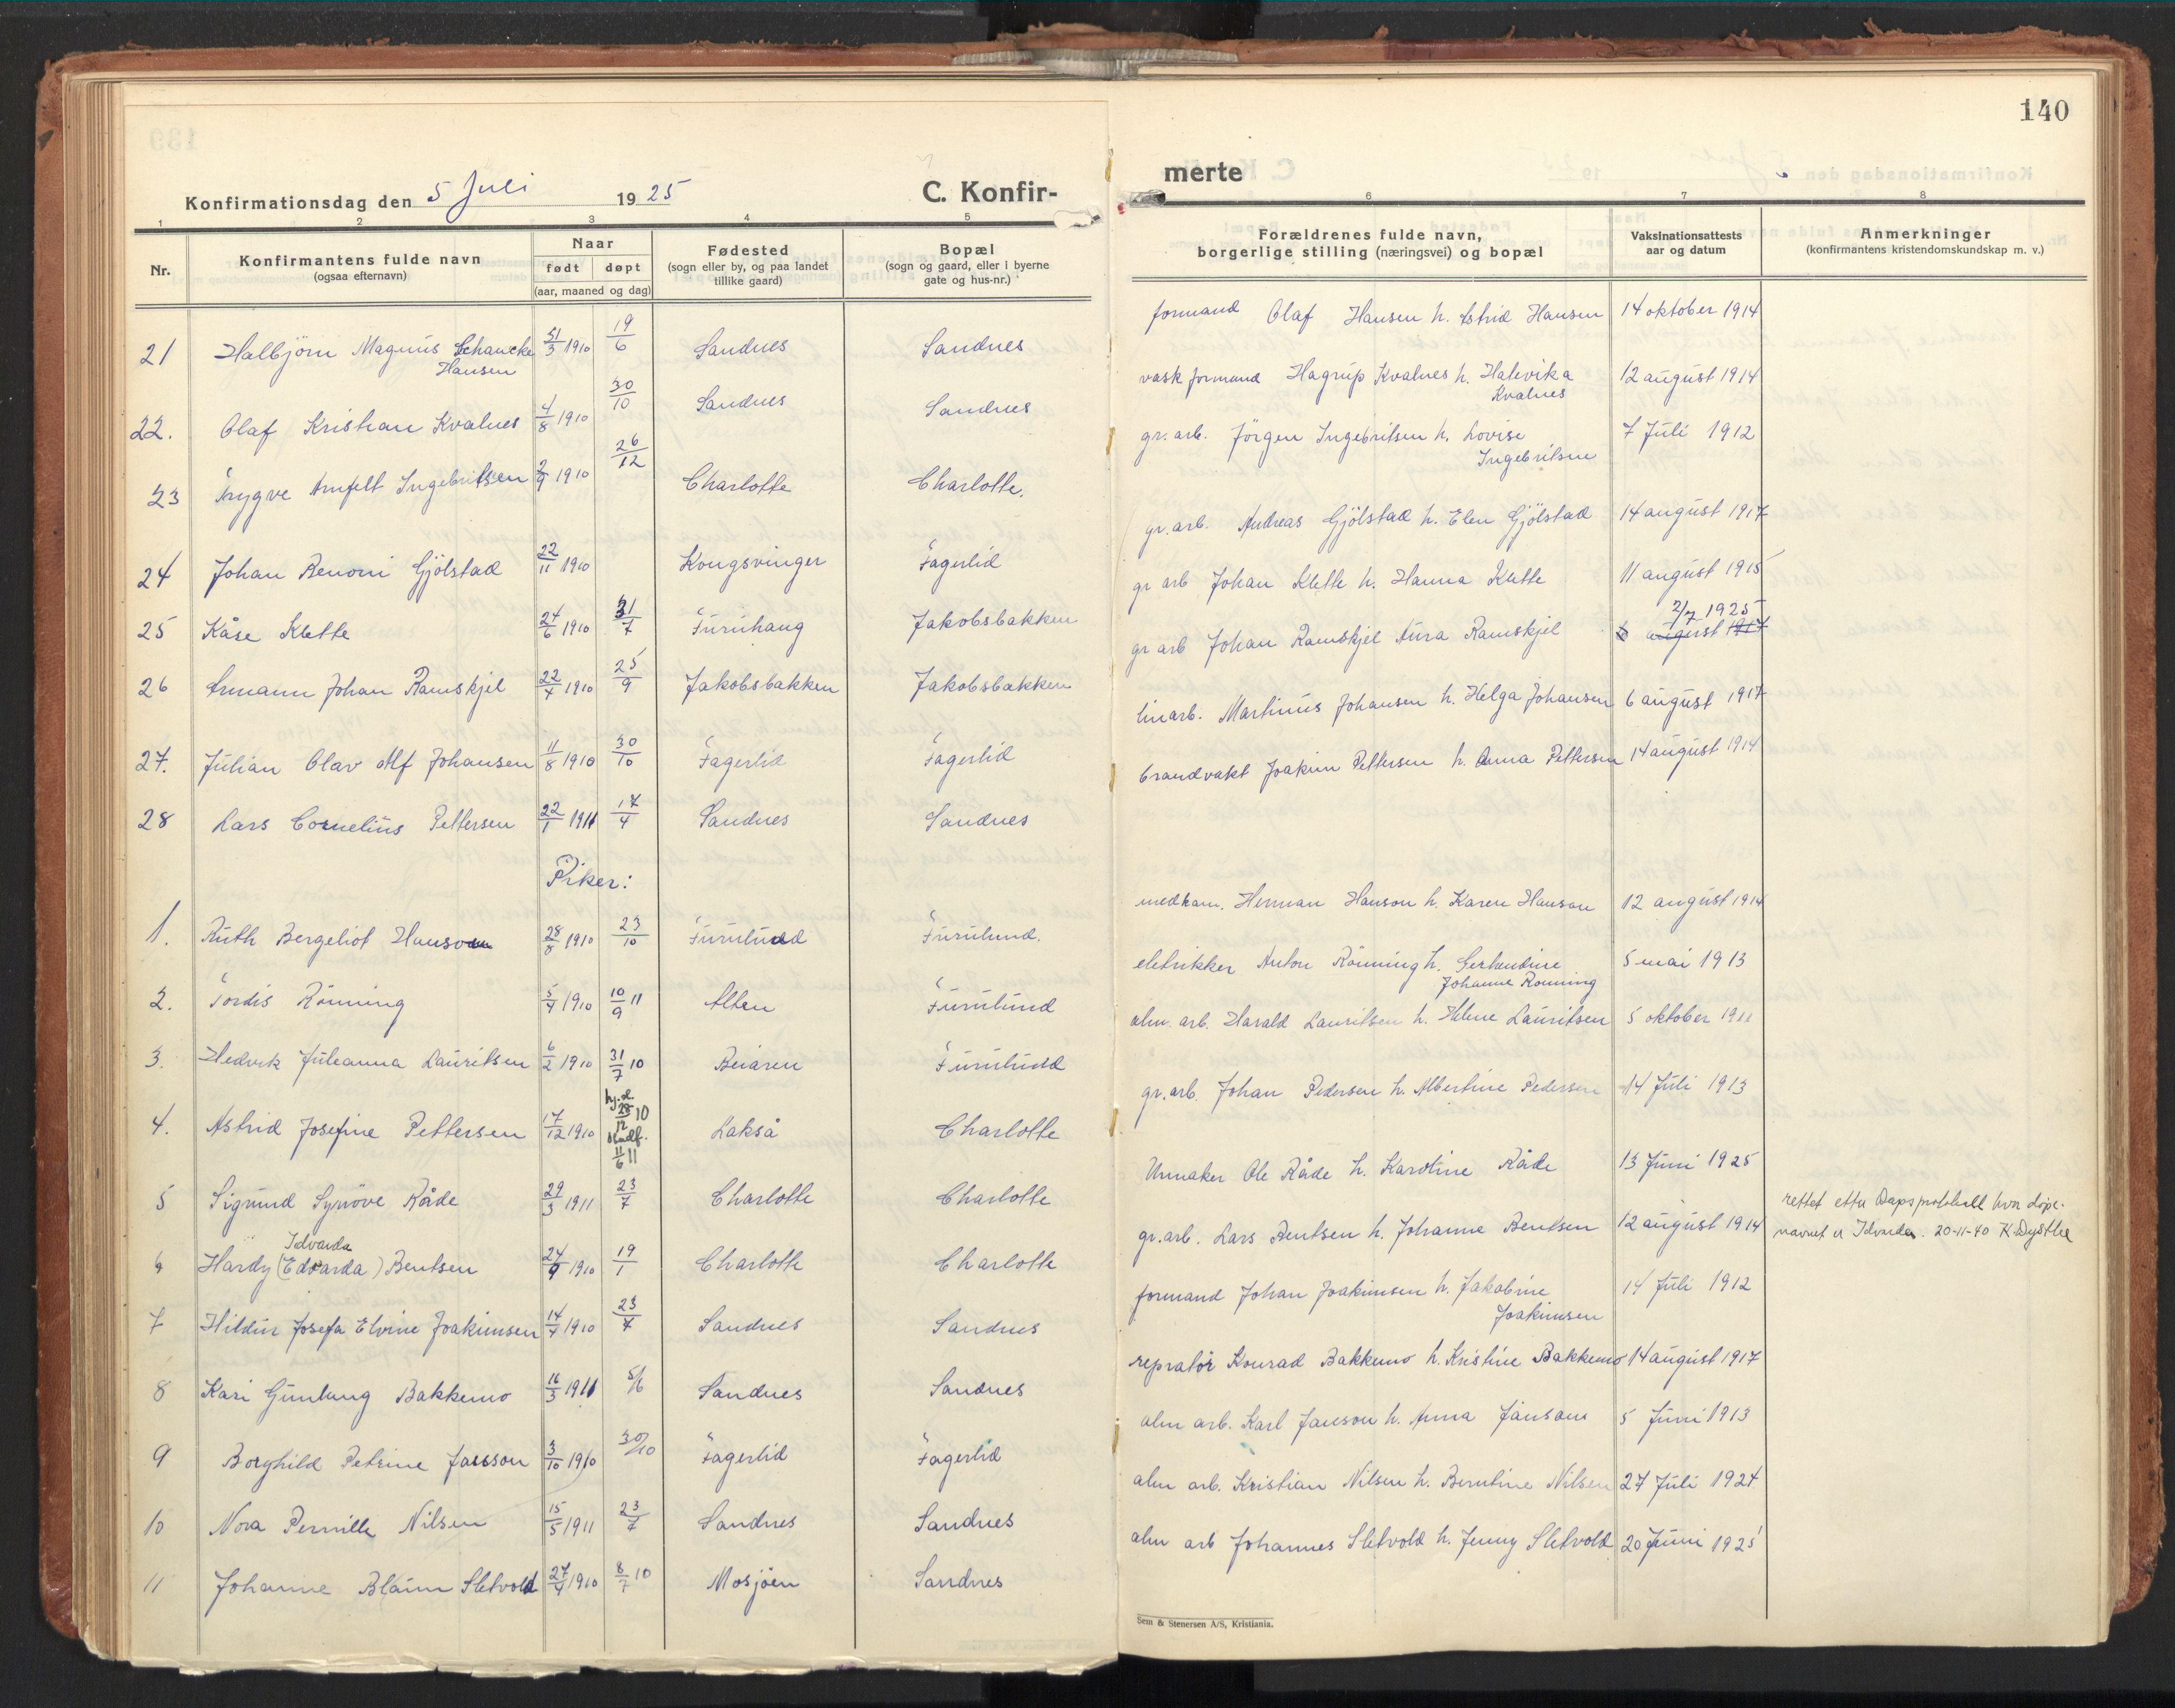 140
Konfirmationsdag den 5 Juli 1925
C. Konfir-
merte
1 2 3 4 5 6 7 8
Nr.
Konfirmantens fulde navn
(ogsaa efternavn)
Naar
født døpt
(aar, maaned og dag)
Fødested
(sogn eller by, og paa landet
tillike gaard)
Bopæl
(sogn og gaard, eller i byerne
gate og hus-nr.)
Forældrenes fulde navn,
borgerlige stilling (næringsvei) og bopæl
Vaksinationsattests
aar og datum
Anmerkninger
(konfirmantens kristendomskundskap m. v.)
21 Halbjörn Magnus Schancke 31/3 1910 19/6 Sandnes Sandnes formand Olaf Hansen h. Astrid Hansen 14 oktober 1914
Hansen
22. Olaf Kristian Kvalnes 4/8 1910 30/10 Sandnes Sandnes vaskformand Hagrup Kvalnes h. 12 august 1914
Kvalnes
23 Trygve Arnfelt Ingebritsen 2/9 1910 26/12 Charlotte Charlotte. gr. arb. Jörgen Ingebritsen h. Lovise 7 Juli 1912
Ingebritsen
24 Johan Benoni Gjölstad 22/11 1910 Kongsvinger Fagerlid gr. arb. Andreas Gjölstad h. Elen Gjölstad 14 august 1917
25 Kåre Klette 24/6 1910 31/7 Furuhaug Jakobsbakken gr arb Johan Klette h. Hanna Klette 11 august 1915
2/7 1925
26 Armann Johan Ramskjel 22/4 1910 25/9 Jakobsbakken Jakobsbakken gr arb Johan Ramskjel Aura Ramskjel 6 august 1917
27. Julian Olav Alf Johansen 11/8 1910 30/10 Fagerlid Fagerlid linarb. Martinus Johansen h. Helga Johansen 6 august 1917
28 Lars Cornelius Pettersen 22/1 1911 17/4 Sandnes Sandnes brandvakt Joakim Pettersen h. Anna Pettersen 14 august 1914
Piker:
1. Ruth Bergeliot Hanson 28/8 1910 23/10 Furulund Furulund. Herman Hanson h. Karen Hanson 12 august 1914
2. Tordis Rönning 5/4 1910 10/9 11 Alten Furulund eletrikker Anton Rönning h. 5 mai 1913
Johanne Rönning
3. Hedvik Juleanna Lauritsen 6/2 1910 31/7 10 Beiaren Furulund alm. arb. Harald Lauritsen h. Helene Lauritsen 5 oktober 1911
4. Astrid Josefine Pettersen 17/12 1910 hj. d. 28/12 10 stadf. 11/6 11 Lakså Charlotte gr. arb. Johan Pedersen h. Albertine Pedersen 14 Juli 1913
5 Sigrund Synöve Råde 29/3 1911 23/7 Charlotte Charlotte Urmaker Ole Råde h. Karoline Råde 13 Juni 1925
Idvarda
6 Hardy (Edvarda) Bentsen 24/9 1910 19/1 Charlotte Charlotte gr. arb. Lars Bentsen h. Johanne Bentsen 12 august 1914
rettet etter Dapsprotokoll hvor döpe-
navnet er Idvarda. 20-11-40 K. Dysthe
7 Hildur Josefa Elvine Joakimsen 14/4 1910 23/7 Sandnes Sandnes formand Johan Joakimsen h. Jakobine 14 Juli 1912
Joakimsen
8 Kari Gunlaug Bakkemo 16/3 1911 5/6 Sandnes Sandnes repratör Konrad Bakkemo h. Kristine Bakkemo 14 august 1917
9 Borghild Petrine Janson 3/10 1910 30/10 Fagerlid Fagerlid alm arb. Karl Janson h. Anna Janson 5 Juni 1913
10 Nora Pernille Nilsen 15/5 1911 23/7 Sandnes Sandnes alm arb. Kristian Nilsen h. Berntine Nilsen 27 Juli 1924
11 Johanne Sletvold 27/4 1910 8/7 10 Mosjöen Sandnes alm arb Johannes Sletvold h. Jenny Sletvold 20 Juni 1925
Sem & Stenersen A/S, Kristiania.